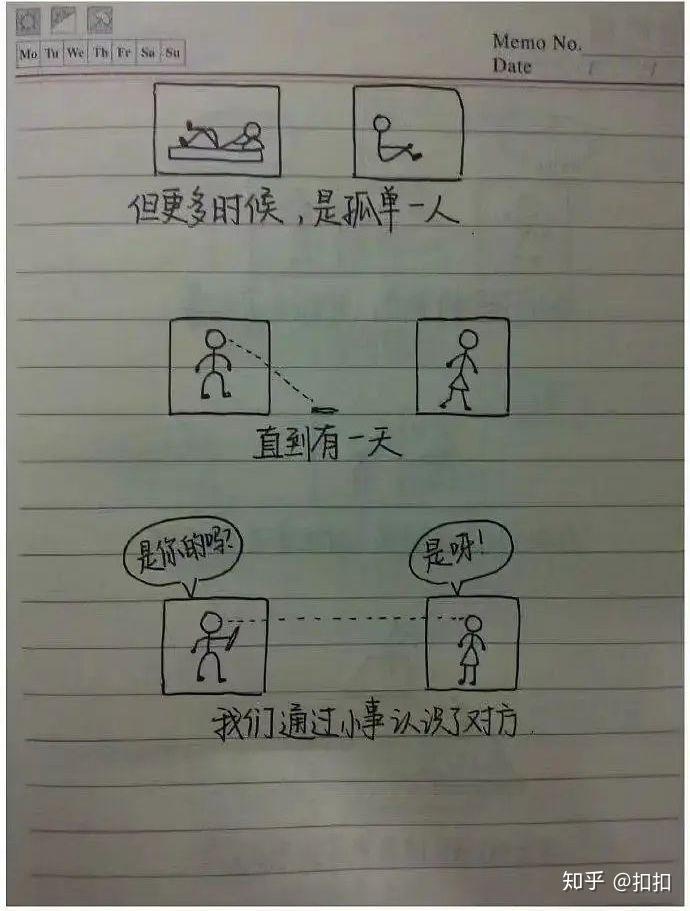 Mo Tu We Th Fr Sa Su
Memo No.
Date / /
但更多时候，是孤单一人
直到有一天
是你的吗?
是呀!
我们通过小事认识了对方.
知乎 @扣扣